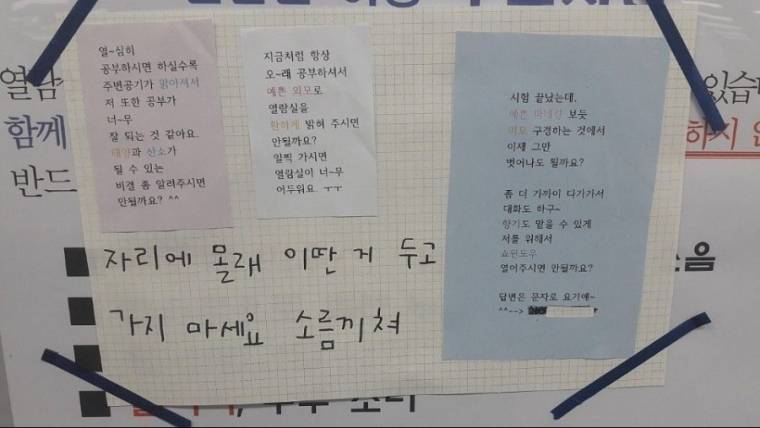 열~심히
공부하시면 하실수록
주변공기가 맑아져서
저 또한 공부가
너~무
잘 되는 것 같아요.
태양과 산소가
될 수 있는
비결 좀 알려주시면
안될까요? ^^
지금처럼 항상
오~래 공부하셔서
예쁜 외모로
열람실을
환하게 밝혀 주시면
안될까요?
일찍 가시면
열람실이 너~무
어두워요. ㅜㅜ
시험 끝났는데,
예쁜 마네킹 보듯
구경하는 것에서
이제 그만
벗어나도 될까요?
좀 더 가까이 다가가서
대화도 하구~
향기도 맡을 수 있게
저를 위해서
쇼윈도우
열어주시면 안될까요?
답변은 문자로 요기에~
^^-->
자리에 몰래 이딴 거 두고
가지 마세요 소름끼쳐
열람
함께
반드
있습니
하지 않
소음
소리